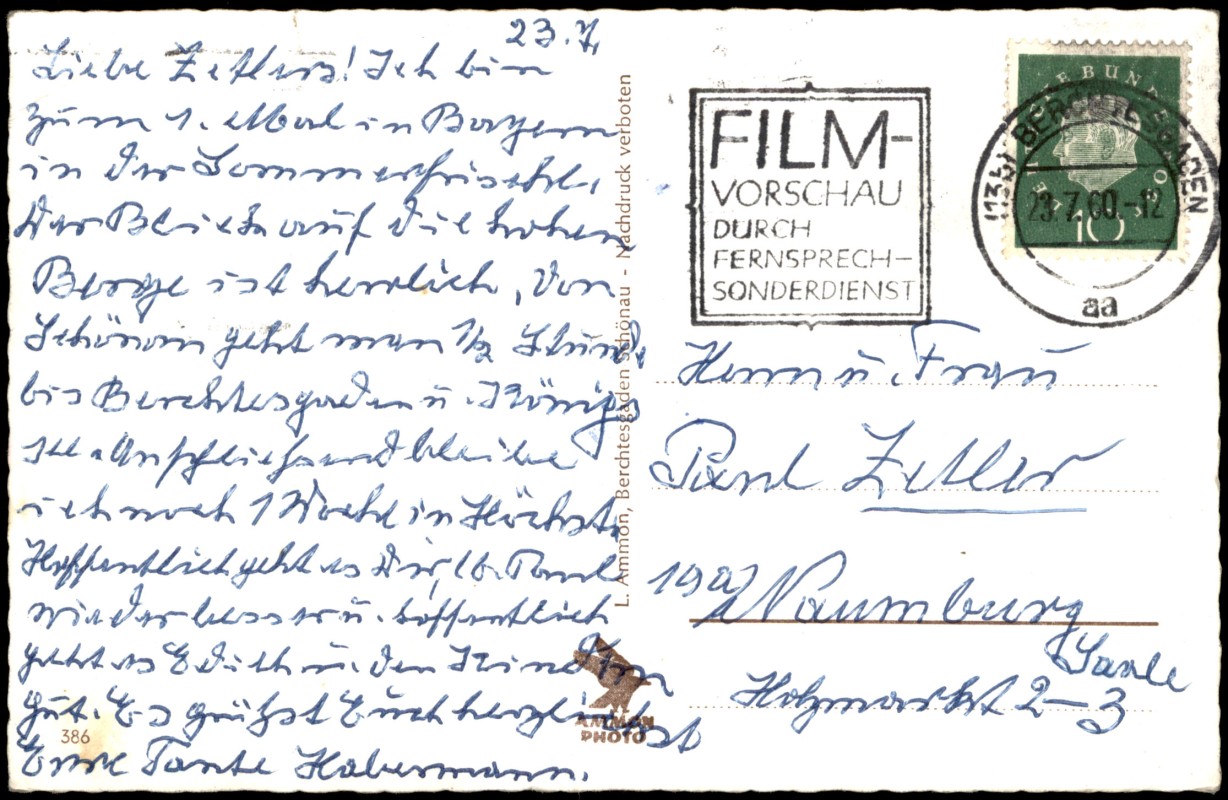 23.7.
Liebe Zetlers! Ich bin
zum 1. Mal in Bayern
in der Sommerfrische.
Der Blick auf die hohen
Berge ist herrlich, Von
Schönau geht man 1/2 Stunde
bis Berchtesgaden u. Königs
see. Anschließend bleibe
ich noch 1 Woche in Höchst.
Hoffentlich geht es Dir, lb. Paul
wieder besser u. hoffentlich
geht es Edith u. den Kindern
gut. Es grüßt Euch herzlichst
Eure Tante Habermann.
386
L. Ammon, Berchtesgaden Schönau - Nachdruck verboten
AMMON
PHOTO
FILM-
VORSCHAU
DURCH
FERNSPRECH-
SONDERDIENST
(13b) BERCHTESGADEN
23.7.60.-12
aa
DEUTSCHE BUNDESPOST
10
Herrn u. Frau
Paul Zetler
19a) Naumburg
Saale
Holzmarkt 2-3